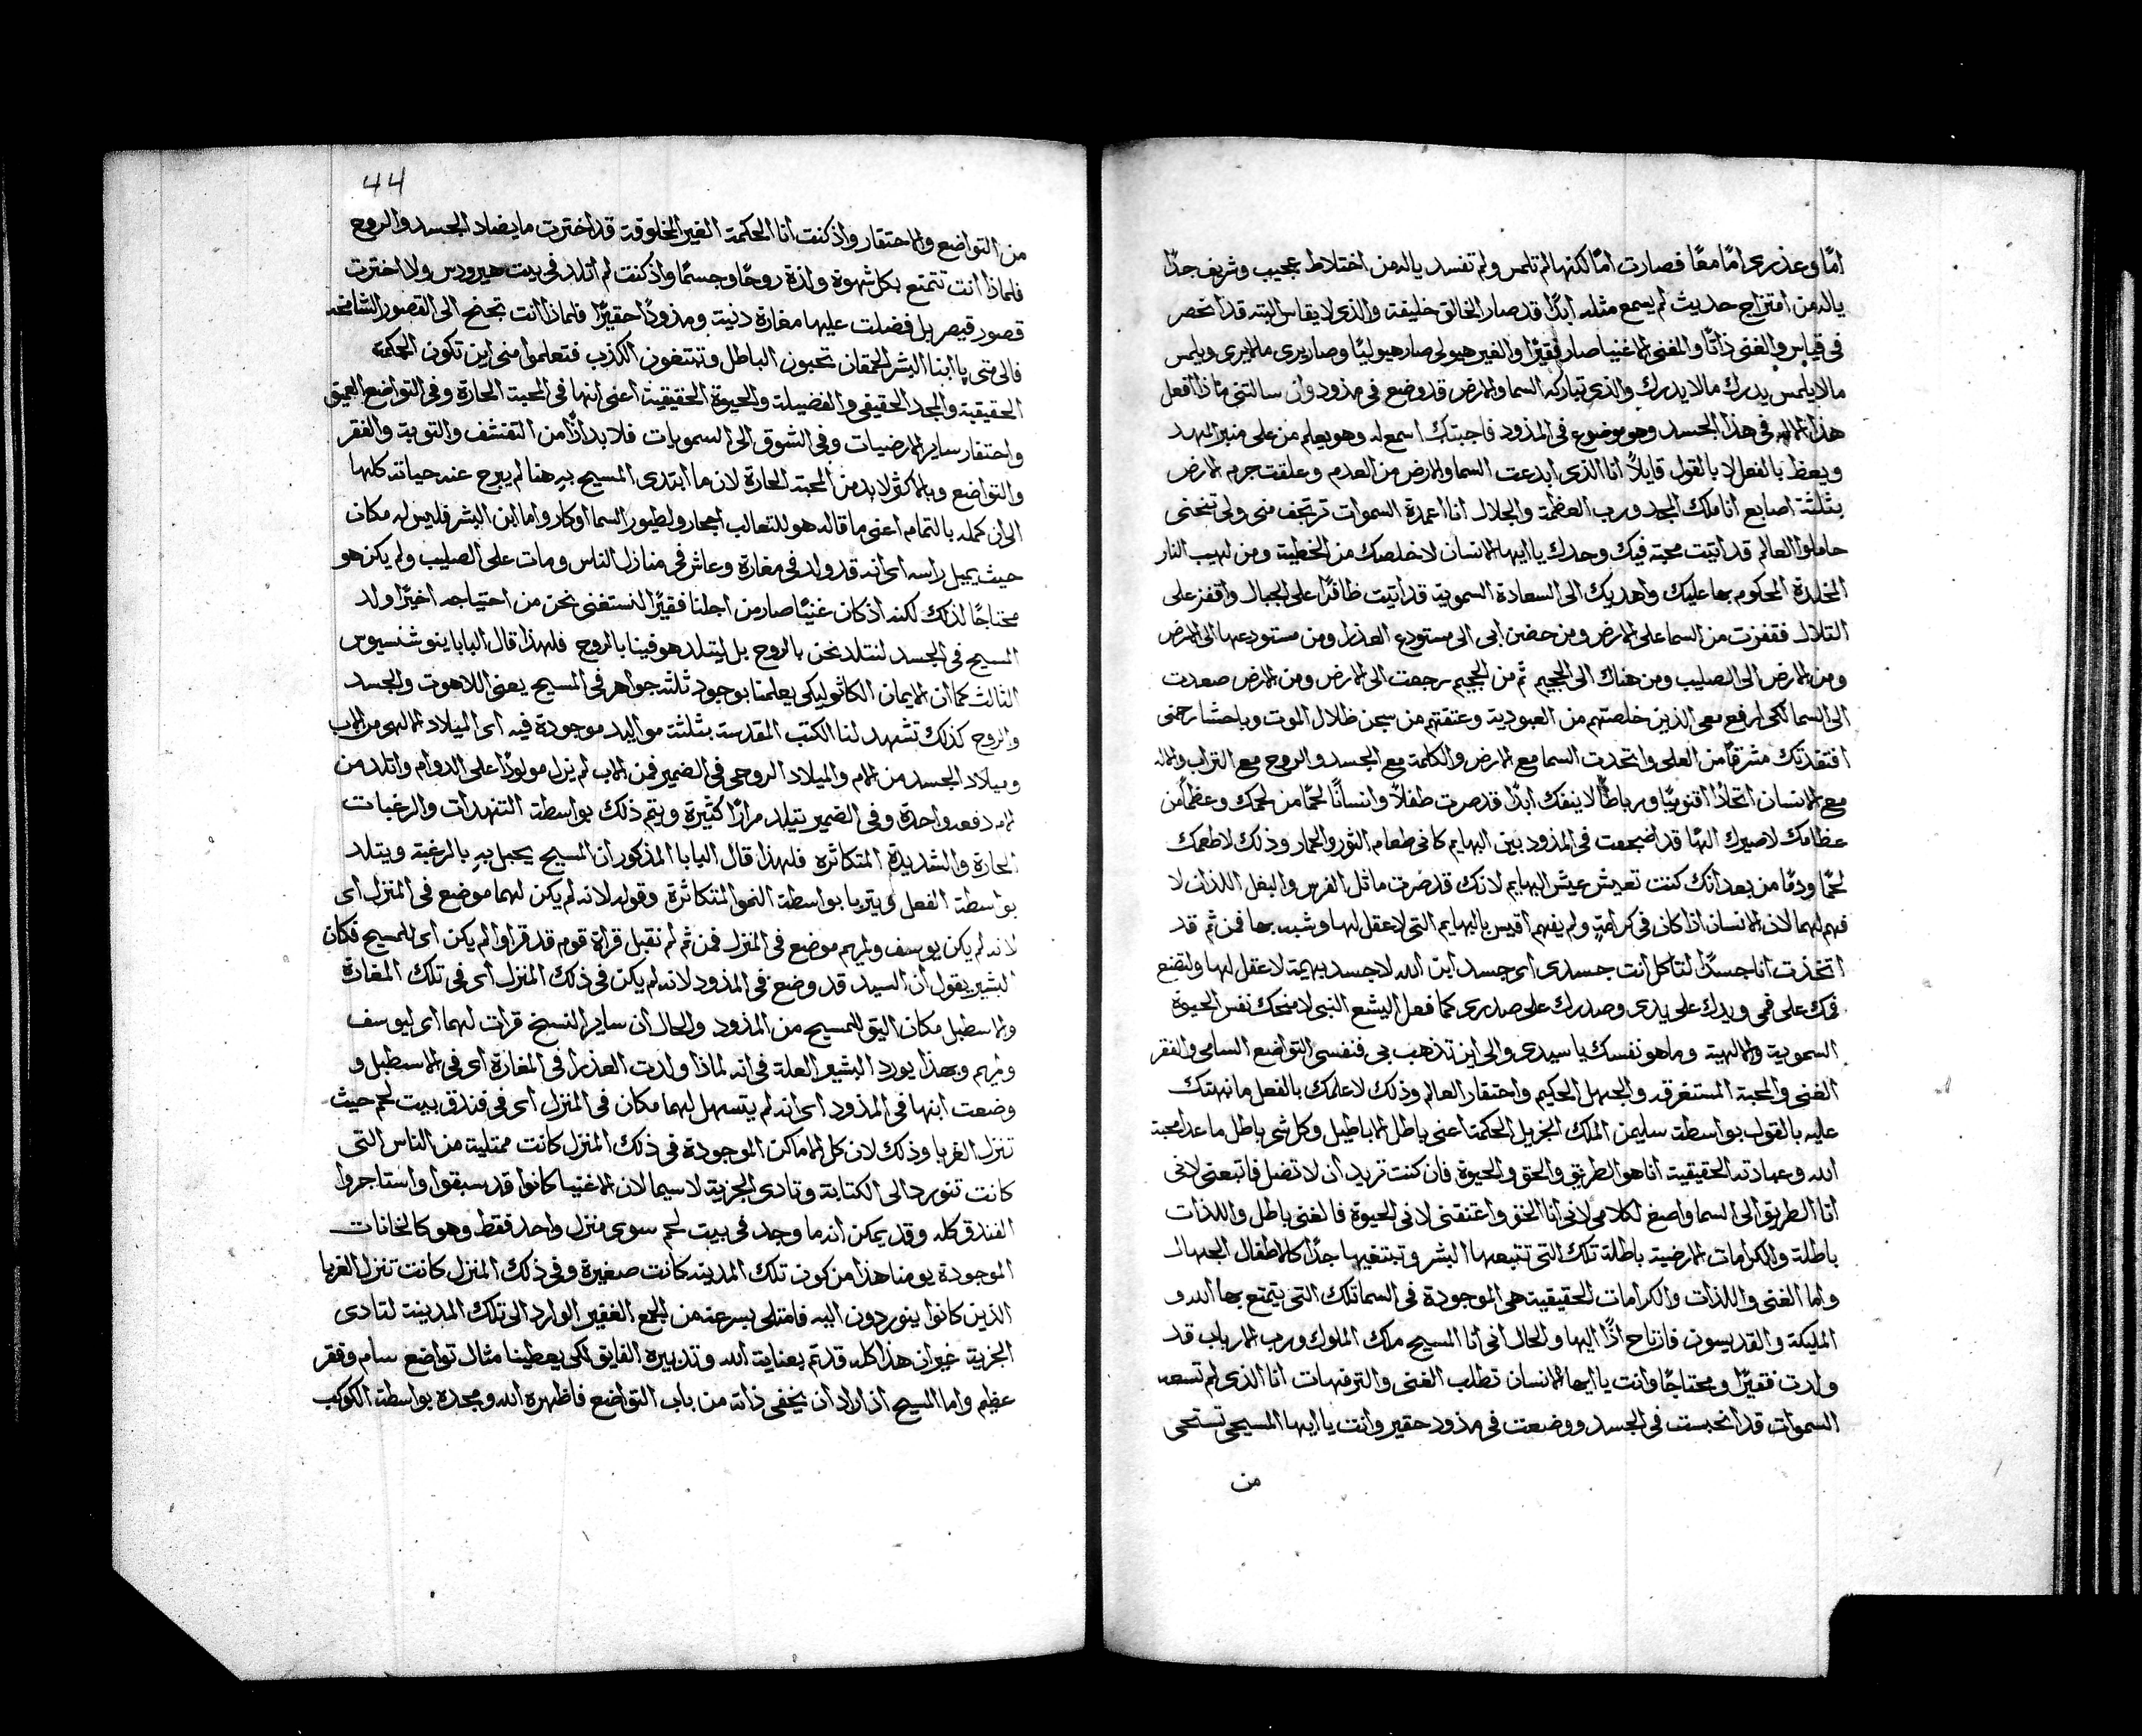 امًا وعذرى امًا معًا فصارت امًا لكنها لم تلمس ولم تفسد ياله من اختلاط عجيب وشريف جدًا
ياله من امتزاج حديث لم يسمع مثله ابدًا قد صار الخالق خليقة والذى لا يقاس البته قد انحصر
فى قياس والغنى ذاتًا والمغنى الاغنيا صار فقيرًا والغير هيولى صار هيوليًا وصار يرى ما لا يرى ويلمس
ما لا يلمس يدرك ما لا يدرك والذى تباركه السما والارض قد وضع فى مذود وان سالتنى ماذا افعل
هذا الاله فى هذا الجسد وهو موضوع فى المذود فاجبتك اسمع له وهو يعلم من على منبر المهد
ويعظ بالفعل لا بالقول قايلاً انا الذى ابدعت السما والارض من العدم وعلقت جرم الارض
بثلثة اصابع انا ملك المجد ورب العظمة والجلال انا اعمدة السموات ترتجف منى ولى تنحنى
حاملوا العالم قد اتيت محبة فيك وحدك يا ايها الانسان لاخلصك من الخطية ومن لهيب النار
المخلدة المحكوم بها عليك واهديك الى السعادة السموية قد اتيت ظافرًا على الجبال واقفز على
التلال فقفزت من السما على الارض ومن حضن ابى الى مستودع العذرا ومن مستودعها الى الارض
ومن الارض الى الصليب ومن هناك الى الجحيم ثم من الجحيم رجعت الى الارض ومن الارض صعدت
الى السما لكى ارفع معى الذين خلصتهم من العبودية وعتقتهم من سجن ظلال الموت وباحشا رحمتى
افتقدتك مشرقًا من العلى واتحدت السما مع الارض والكلمة مع الجسد والروح مع التراب والاله
مع الانسان اتحادًا اقنوميًا ورباطًا لا ينفك ابدًا قد صرت طفلاً وانسانًا لحمًا من لحمك وعظمًا من
عظامك لاصيرك الهًا قد اضجعت فى المذود بين البهايم كانى طعام الثور والحمار وذلك لاطعمك
لحمًا ودمًا من بعد انك كنت تعيش عيش البهايم لانك قد صرت ماثل الفرس والبغل اللذان لا
فهم لهما لان الانسان اذا كان فى كرامةٍ ولم يفهم اقيس بالبهايم التى لا عقل لها وشبه بها فمن ثم قد
اتخذت انا جسدًا لتاكل انت جسدى اى جسد ابن الله لا جسد بهيمة لا عقل لها ولتضع
فمك على فمى ويدك على يدى وصدرك على صدرى كما فعل اليشع النبى لامنحك نفس الحيوة
السموية والالهية وما هو نفسك يا سيدى والى اين تذهب بى فنفسى التواضع السامى والفقر
الغنى والمحبة المستغرقه والجهل الحكيم واحتقار العالم وذلك لاعلمك بالفعل ما نبهتك
عليه بالقول بواسطة سليمن الملك الجزيل الحكمة اعنى باطل الاباطيل وكل شى باطل ما عدا محبة
الله وعبادته الحقيقية انا هو الطريق والحق والحيوة فان كنت تريد ان لا تضل فاتبعنى لانى
انا الطريق الى السما واصغ لكلامى لانى انا الحق واعتنقنى لانى الحيوة فالغنى باطل واللذات
باطلة والكرامات الارضية باطلة تلك التى تتبعها البشر وتبتغيها جدًا كالاطفال الجهال
واما الغنى واللذات والكرامات الحقيقية هى الموجودة فى السما تلك التى يتمتع بها الله و
المليكة والقديسون فارتاح اذًا اليها والحال انى انا المسيح ملك الملوك ورب الارباب قد
ولدت فقيرًا ومحتاجًا وانت يا ايها الانسان تطلب الغنى والترفهات انا الذى لم تسعه
السموات قد انحبست فى الجسد ووضعت فى مذود حقير وانت يا ايها المسيحى تستحى
من
44
من التواضع والاحتقار واذ كنت انا الحكمة الغير المخلوقة قد اخترت ما يضاد الجسد والروح
فلماذا انت تتمتع بكل شهوة ولذة روحًا وجسمًا واذ كنت لم اتلد فى بيت هيرودس ولا اخترت
قصور قيصر بل فضلت عليها مغارة دنية ومذودًا حقيرًا فلماذا انت تجنح الى القصور الشامخه
فالى متى يا ابنا البشر الحمقان تحبون الباطل وتبتغون الكذب فتعلموا منى اين تكون الحكمة
الحقيقية والمجد الحقيقى والفضيلة والحيوة الحقيقية اعنى انها فى المحبة الحارة وفى التواضع العميق
واحتقار ساير الارضيات وفى الشوق الى السمويات فلا بد اذًا من التقشف والتوبة والفقر
والتواضع وبالاكثر لا بد من المحبة الحارة لان ما ابتدى المسيح بهِ هنا لم يبرح عنه حياته كلها
الى ان كمله بالتمام اعنى ما قاله هو للثعالب اجحار ولطيور السما اوكار واما ابن البشر فليس له مكان
حيث يميل راسه اى انه قد ولد فى مغارة وعاش فى منازل الناس ومات على الصليب ولم يكن هو
محتاجًا لذلك لكنه اذ كان غنيًا صار من اجلنا فقيرًا لنستغنى نحن من احتياجه اخيرًا ولد
المسيح فى الجسد لنتلد نحن بالروح بل ليتلد هو فينا بالروح فلهذا قال البابا ينوشنسيوس
الثالث كما ان الايمان الكاثوليكى يعلمنا بوجود ثلثة جواهر فى المسيح يعنى اللاهوت والجسد
والروح كذلك تشهد لنا الكتب المقدسة بثلثة مواليد موجودة فيه اى الميلاد الالهى من الاب
وميلاد الجسد من الام والميلاد الروحى فى الضمير فمن الاب لم يزل مولودًا على الدوام واتلد من
امه دفعه واحدة وفى الضمير يتلد مرارًا كثيرة ويتم ذلك بواسطة التنهدات والرغبات
الحارة والشديدة المتكاثره فلهذا قال البابا المذكور ان المسيح يحبل بهِ بالرغبة ويتلد
بواسطة الفعل ويتربا بواسطة النمو المتكاثرة وقوله لانه لم يكن لهما موضع فى المنزل اى
لانه لم يكن يوسف ولمريم موضع فى المنزل فمن ثم لم نقبل قراة قوم قد قراوا لم يكن اى للمسيح فكان
البشير يقول ان السيد قد وضع فى المذود لانه لم يكن فى ذلك المنزل اى فى تلك المغارة
والاسطبل مكان اليق للمسيح من المذود والحال ان ساير النسخ قرات لهما اى ليوسف
ومريم وبهذا يورد البشير العلة فى انه لماذا ولدت العذرا فى المغارة اى فى الاسطبل و
وضعت ابنها فى المذود اى انه لم يتسهل لهما مكان فى المنزل اى فى فندق بيت لحم حيث
تنزل الغربا وذلك لان كل الاماكن الموجودة فى ذلك المنزل كانت ممتلية من الناس التى
كانت تتورد الى الكتابة وتادى الجزية لا سيما لان الاغنيا كانوا قد سبقوا واستاجروا
الفندق كله وقد يمكن انه ما وجد فى بيت لحم سوى منزل واحد فقط وهو كالخانات
الموجودة يومنا هذا من كون تلك المدينه كانت صغيرة وفى ذلك المنزل كانت تنزل الغربا
الذين كانوا يتوردون اليه فامتلى بسرعة من الجمع الغفير الوارد الى تلك المدينة لتادى
الجزية غير ان هذا كله قد تم بعناية الله وتدبيره الفايق لكى يعطينا مثال تواضع سام وفقر
عظيم واما المسيح اذ اراد ان يخفى ذاته من باب التواضع فاظهره الله ومجده بواسطة الكوكب